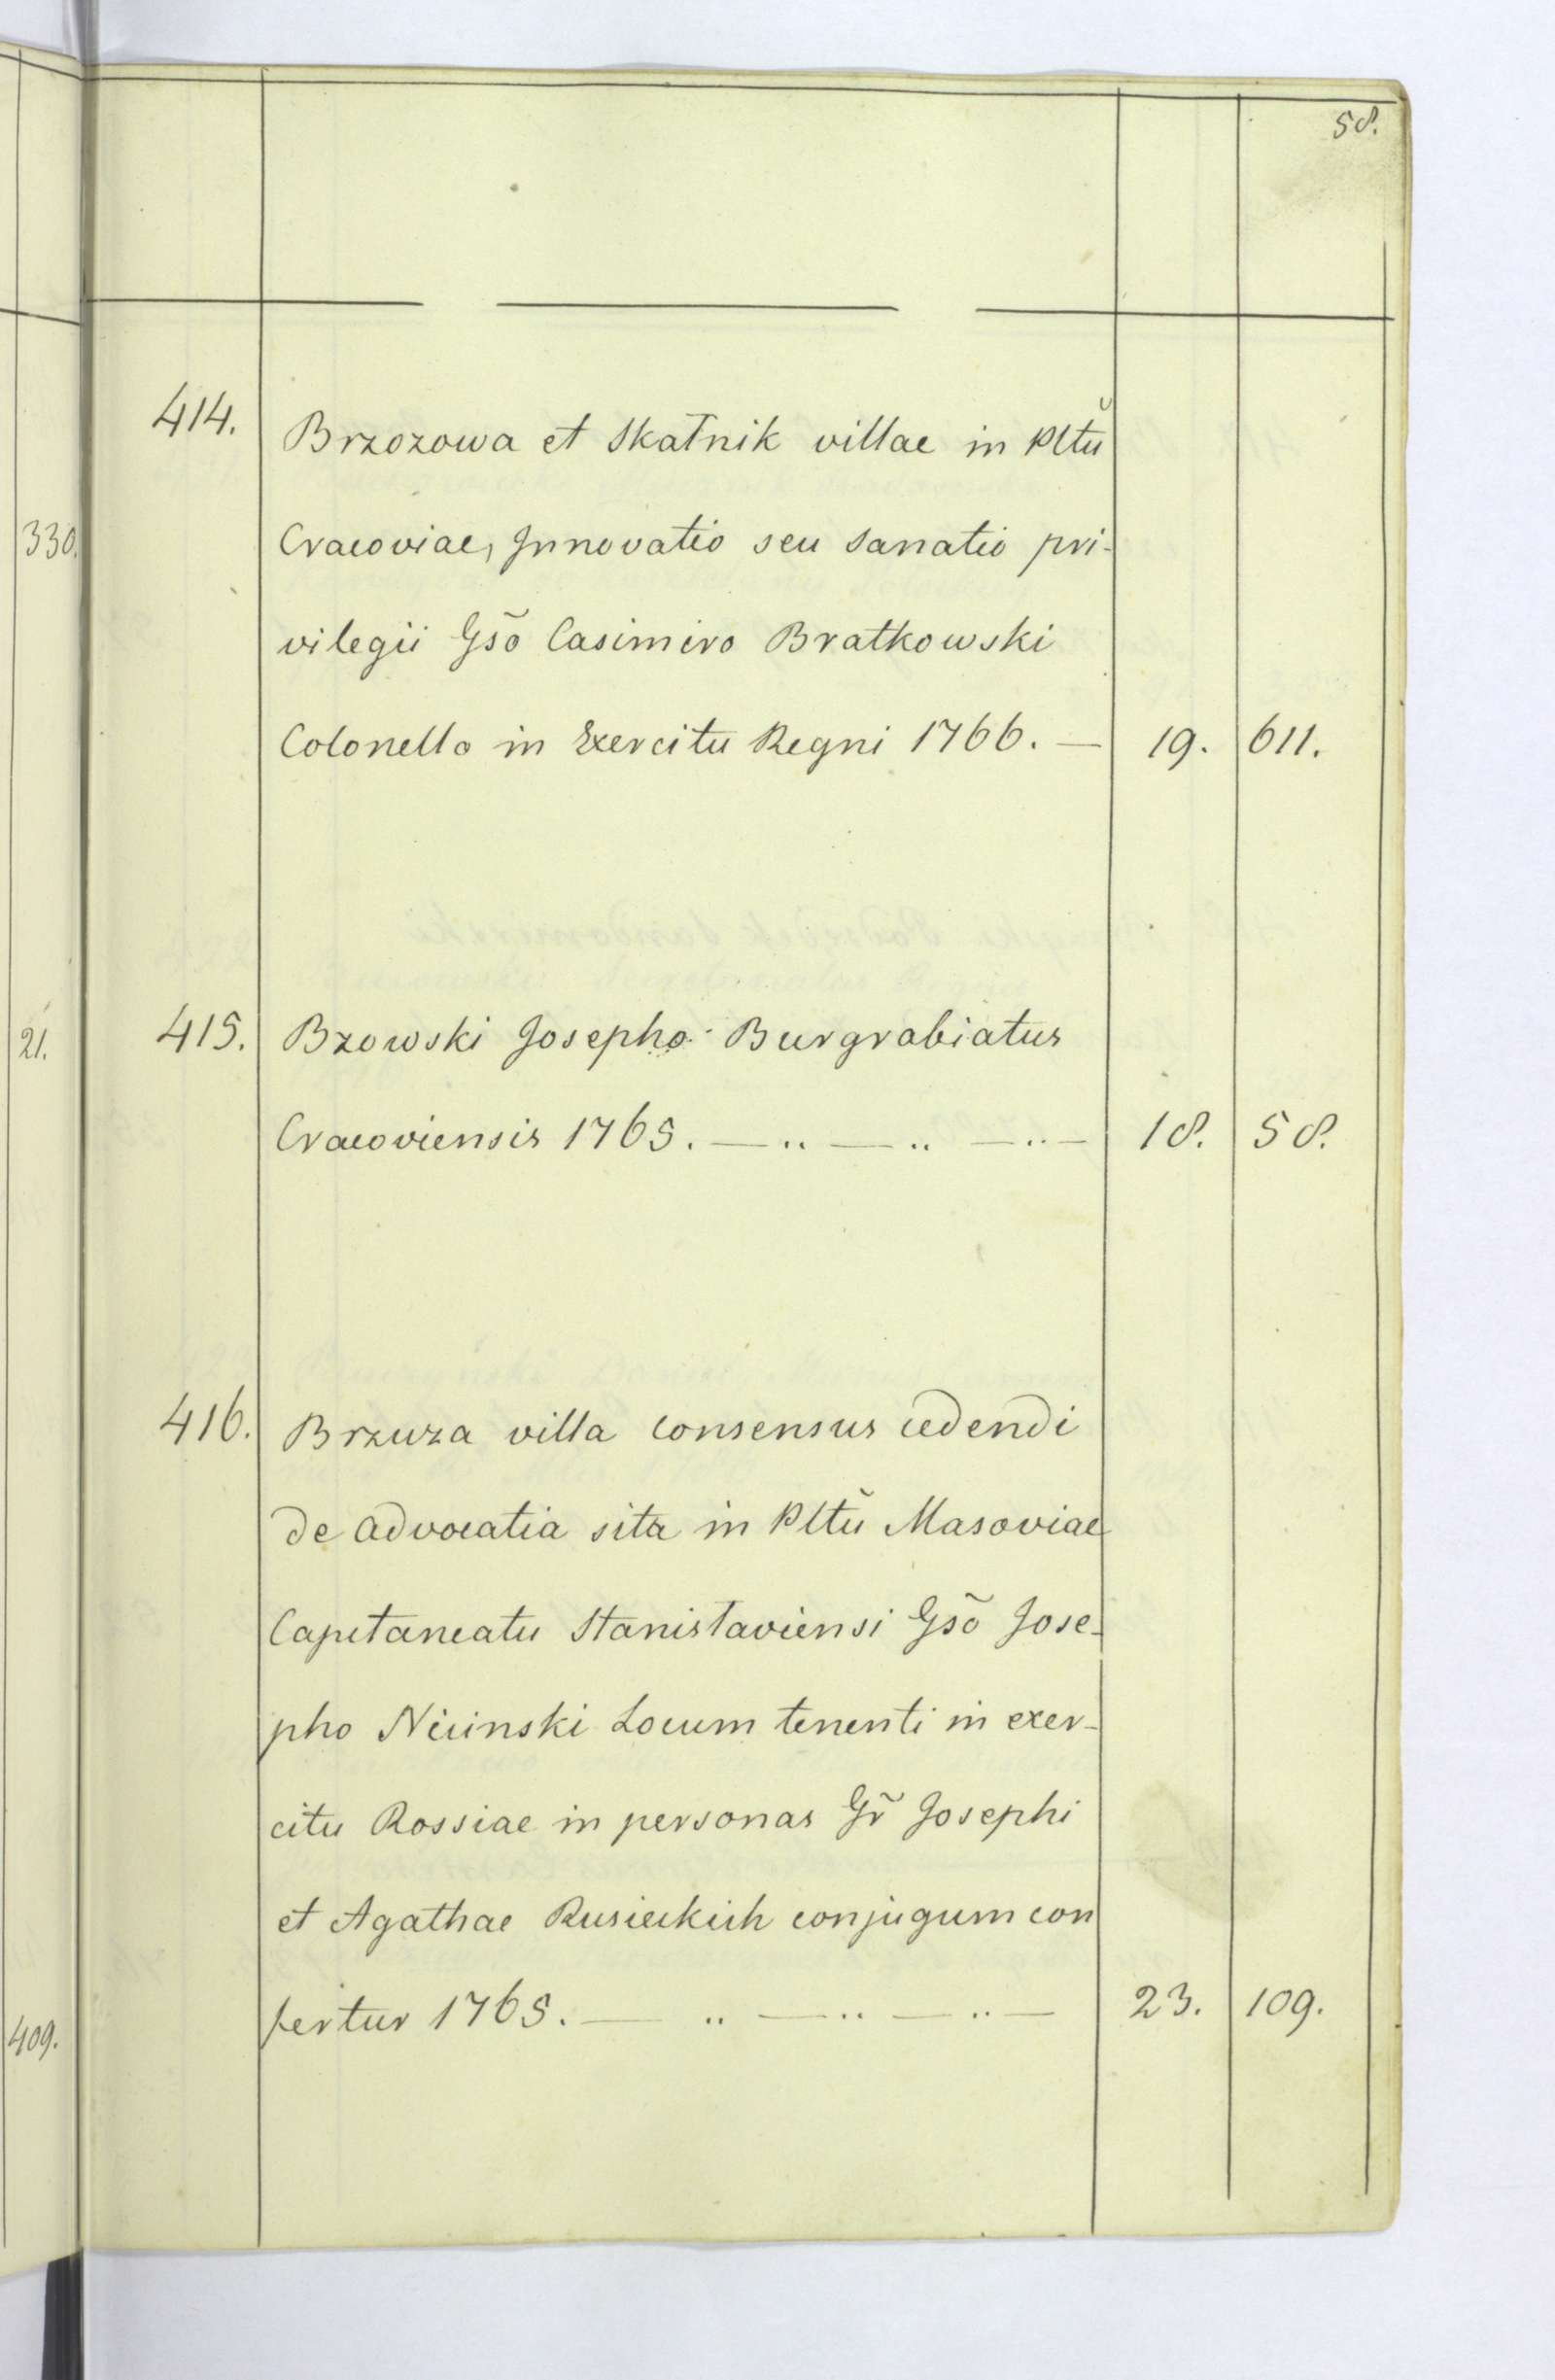 58.
414. Brzozowa et Skałnik villae in Pltŭ
Cracoviae, Innovatio seu Sanatio pri-
vilegii Gsõ Casimiro Bratkowski
Colonello in Exercitu Regni 1766. — 19. 611.
415. Bzowski Josepho Burgrabiatus
Cracoviensis 1765. — .. — .. — .. — 18. 58.
416. Brzuza villa consensus cedendi
de advocatia sita in Pltŭ Masoviae
Capitaneatu Stanisłaviensi Gsõ Jose-
pho Nicinski Locum tenenti in exer-
citu Rossiae in personas Gr̃ Josephi
et Agathae Rusieckich conjugum con
fertur 1765. — .. — .. — .. — 23. 109.
330.
21.
409.